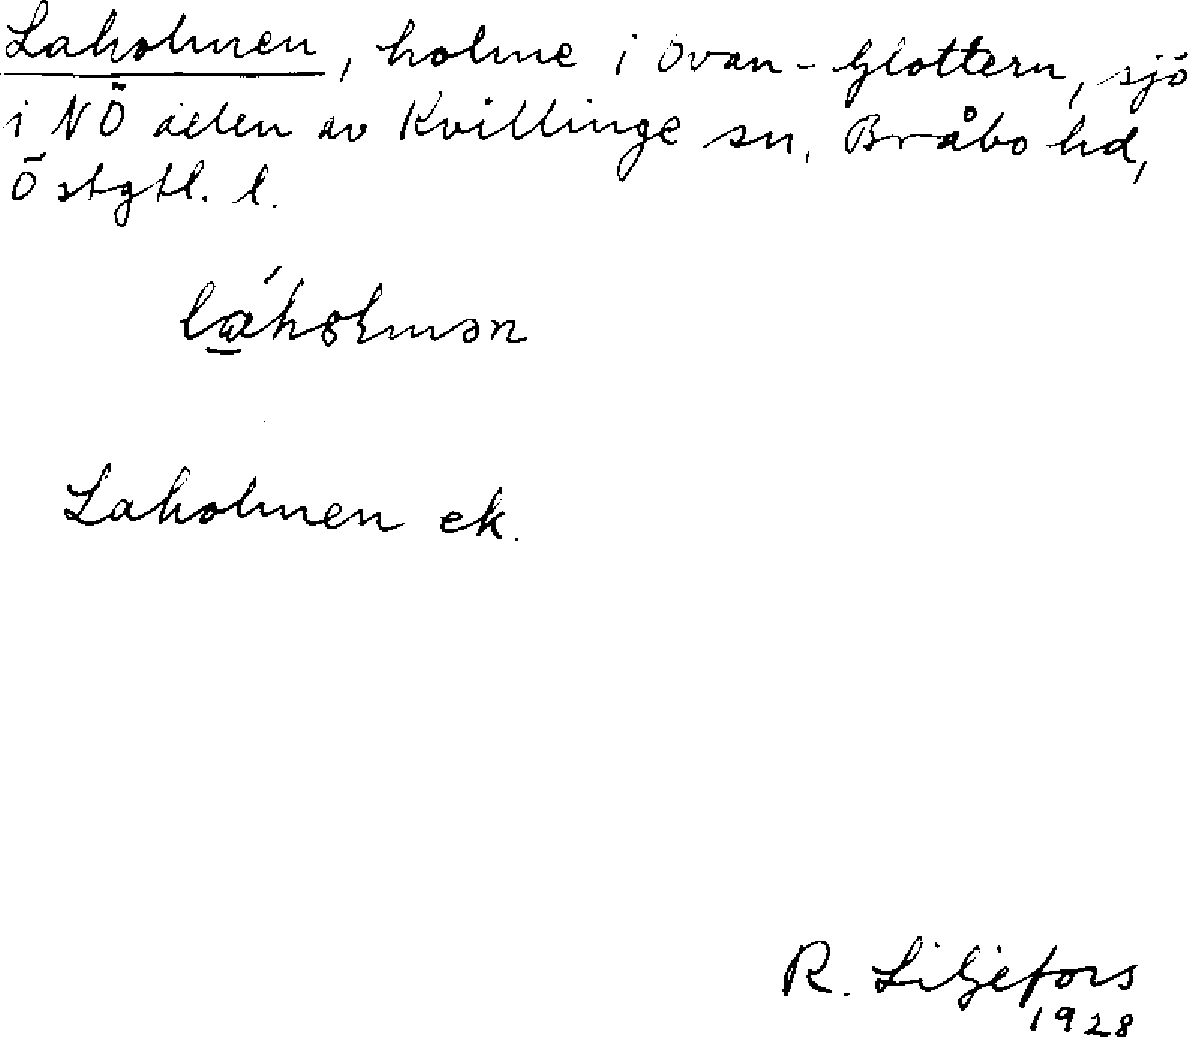 Laholmen, holme i Ovan-Glottern, sjö
i NÖ delen av Kvillinge sn, Bråbo hd,
Östgtl. l.
Laholmen ek.
R. Liljefors
1928